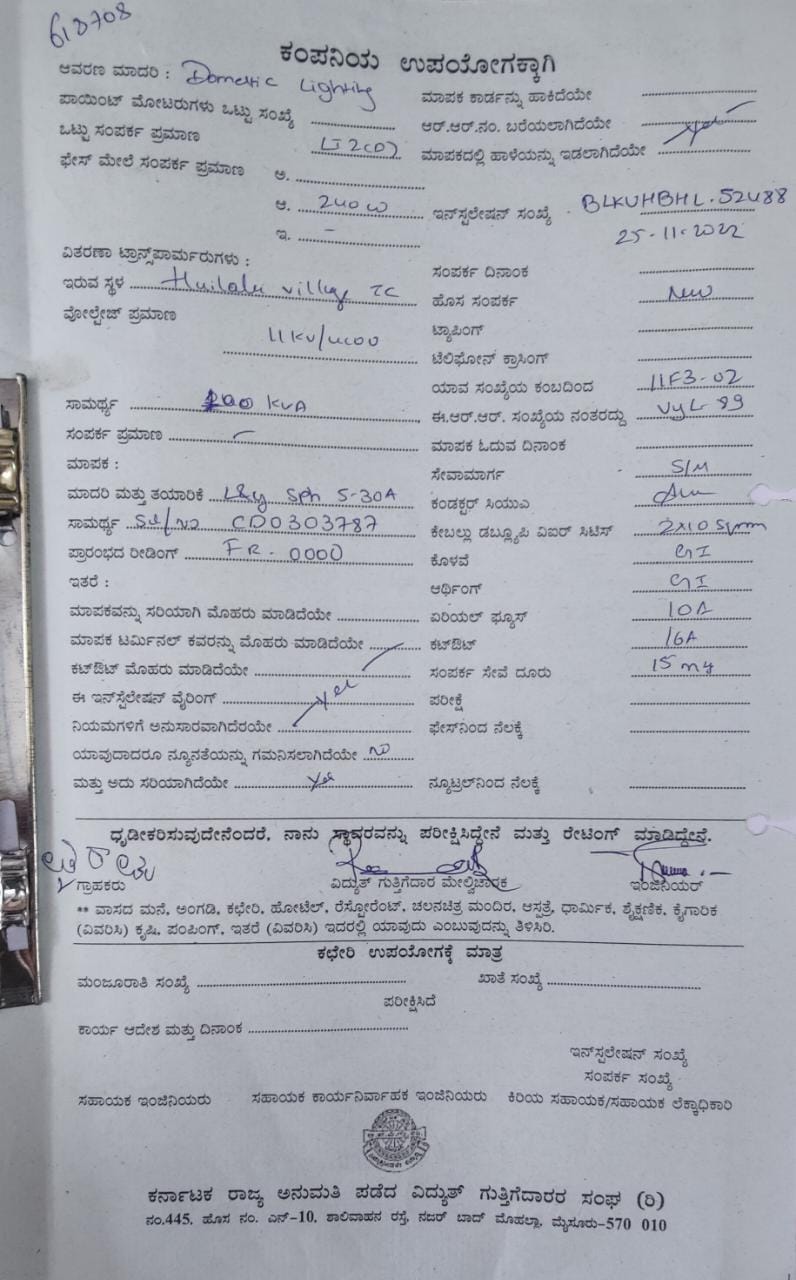 618708
ಕಂಪನಿಯ ಉಪಯೋಗಕ್ಕಾಗಿ
ಆವರಣ ಮಾದರಿ : Domestic Lighting
ಮಾಪಕ ಕಾರ್ಡನ್ನು ಹಾಕಿದೆಯೇ
ಪಾಯಿಂಟ್ ಮೋಟರುಗಳು ಒಟ್ಟು ಸಂಖ್ಯೆ
ಆರ್.ಆರ್.ನಂ. ಬರೆಯಲಾಗಿದೆಯೇ
ಒಟ್ಟು ಸಂಪರ್ಕ ಪ್ರಮಾಣ
ಮಾಪಕದಲ್ಲಿ ಹಾಳೆಯನ್ನು ಇಡಲಾಗಿದೆಯೇ yes
ಫೇಸ್ ಮೇಲೆ ಸಂಪರ್ಕ ಪ್ರಮಾಣ ಅ.
ಆ. 240 W
ಇನ್‌ಸ್ಟಲೇಷನ್ ಸಂಖ್ಯೆ BLKUHBHL.52488
ಇ. -
25-11-2022
ವಿತರಣಾ ಟ್ರಾನ್ಸ್‌ಪಾರ್ಮರುಗಳು :
ಸಂಪರ್ಕ ದಿನಾಂಕ
ಇರುವ ಸ್ಥಳ Huilalu village TC
ಹೊಸ ಸಂಪರ್ಕ New
ವೋಲ್ಟೇಜ್ ಪ್ರಮಾಣ
ಟ್ಯಾಪಿಂಗ್
11KV/
ಟೆಲಿಫೋನ್ ಕ್ರಾಸಿಂಗ್
ಯಾವ ಸಂಖ್ಯೆಯ ಕಂಬದಿಂದ 11F3-02
ಸಾಮರ್ಥ್ಯ KVA
ಈ.ಆರ್.ಆರ್. ಸಂಖ್ಯೆಯ ನಂತರದ್ದು VYL 89
ಸಂಪರ್ಕ ಪ್ರಮಾಣ -
ಮಾಪಕ ಓದುವ ದಿನಾಂಕ
ಮಾಪಕ :
ಸೇವಾಮಾರ್ಗ S/M
ಮಾದರಿ ಮತ್ತು ತಯಾರಿಕೆ L&G Sph 5-30A
ಕಂಡಕ್ಟರ್ ಸಿಯುಎ
ಸಾಮರ್ಥ್ಯ CD0303787
ಕೇಬಲ್ಲು ಡಬ್ಲ್ಯೂಪಿ ವಿಐರ್ ಸಿಟಿಸ್ 2x10 Sqmm
ಪ್ರಾರಂಭದ ರೀಡಿಂಗ್ FR - 0000
ಕೊಳವೆ GI
ಇತರೆ :
ಆರ್ಥಿಂಗ್ GI
ಮಾಪಕವನ್ನು ಸರಿಯಾಗಿ ಮೊಹರು ಮಾಡಿದೆಯೇ
ಏರಿಯಲ್ ಫ್ಯೂಸ್ 10A
ಮಾಪಕ ಟರ್ಮಿನಲ್ ಕವರನ್ನು ಮೊಹರು ಮಾಡಿದೆಯೇ
ಕಟ್‌ಔಟ್ 16A
ಕಟ್‌ಔಟ್ ಮೊಹರು ಮಾಡಿದೆಯೇ
ಸಂಪರ್ಕ ಸೇವೆ ದೂರು 15 mtr
ಈ ಇನ್‌ಸ್ಟೆಲೇಷನ್ ವೈರಿಂಗ್ yes
ಪರೀಕ್ಷೆ
ನಿಯಮಗಳಿಗೆ ಅನುಸಾರವಾಗಿದೆರಯೇ
ಫೇಸ್‌ನಿಂದ ನೆಲಕ್ಕೆ
ಯಾವುದಾದರೂ ನ್ಯೂನತೆಯನ್ನು ಗಮನಿಸಲಾಗಿದೆಯೇ NO
ಮತ್ತು ಅದು ಸರಿಯಾಗಿದೆಯೇ yes
ನ್ಯೂಟ್ರಲ್‌ನಿಂದ ನೆಲಕ್ಕೆ
ಧೃಡೀಕರಿಸುವುದೇನೆಂದರೆ, ನಾನು ಸ್ಥಾವರವನ್ನು ಪರೀಕ್ಷಿಸಿದ್ದೇನೆ ಮತ್ತು ರೇಟಿಂಗ್ ಮಾಡಿದ್ದೇನೆ.
ಗ್ರಾಹಕರು
ವಿದ್ಯುತ್ ಗುತ್ತಿಗೆದಾರ ಮೇಲ್ವಿಚಾರಕ
ಇಂಜಿನಿಯರ್
** ವಾಸದ ಮನೆ, ಅಂಗಡಿ, ಕಛೇರಿ, ಹೋಟೆಲ್, ರೆಸ್ಟೋರೆಂಟ್, ಚಲನಚಿತ್ರ ಮಂದಿರ, ಆಸ್ಪತ್ರೆ, ಧಾರ್ಮಿಕ, ಶೈಕ್ಷಣಿಕ, ಕೈಗಾರಿಕ
(ವಿವರಿಸಿ) ಕೃಷಿ, ಪಂಪಿಂಗ್, ಇತರೆ (ವಿವರಿಸಿ) ಇದರಲ್ಲಿ ಯಾವುದು ಎಂಬುವುದನ್ನು ತಿಳಿಸಿರಿ.
ಕಛೇರಿ ಉಪಯೋಗಕ್ಕೆ ಮಾತ್ರ
ಮಂಜೂರಾತಿ ಸಂಖ್ಯೆ
ಖಾತೆ ಸಂಖ್ಯೆ
ಪರೀಕ್ಷಿಸಿದೆ
ಕಾರ್ಯ ಆದೇಶ ಮತ್ತು ದಿನಾಂಕ
ಇನ್‌ಸ್ಟಲೇಷನ್ ಸಂಖ್ಯೆ
ಸಂಪರ್ಕ ಸಂಖ್ಯೆ
ಸಹಾಯಕ ಇಂಜಿನಿಯರು
ಸಹಾಯಕ ಕಾರ್ಯನಿರ್ವಾಹಕ ಇಂಜಿನಿಯರು
ಕಿರಿಯ ಸಹಾಯಕ/ಸಹಾಯಕ ಲೆಕ್ಕಾಧಿಕಾರಿ
ಕರ್ನಾಟಕ ರಾಜ್ಯ ಅನುಮತಿ ಪಡೆದ ವಿದ್ಯುತ್ ಗುತ್ತಿಗೆದಾರರ ಸಂಘ (ರಿ)
ನಂ.445, ಹೊಸ ನಂ. ಎನ್-10, ಶಾಲಿವಾಹನ ರಸ್ತೆ, ನಜರ್ ಬಾದ್ ಮೊಹಲ್ಲಾ, ಮೈಸೂರು-570 010